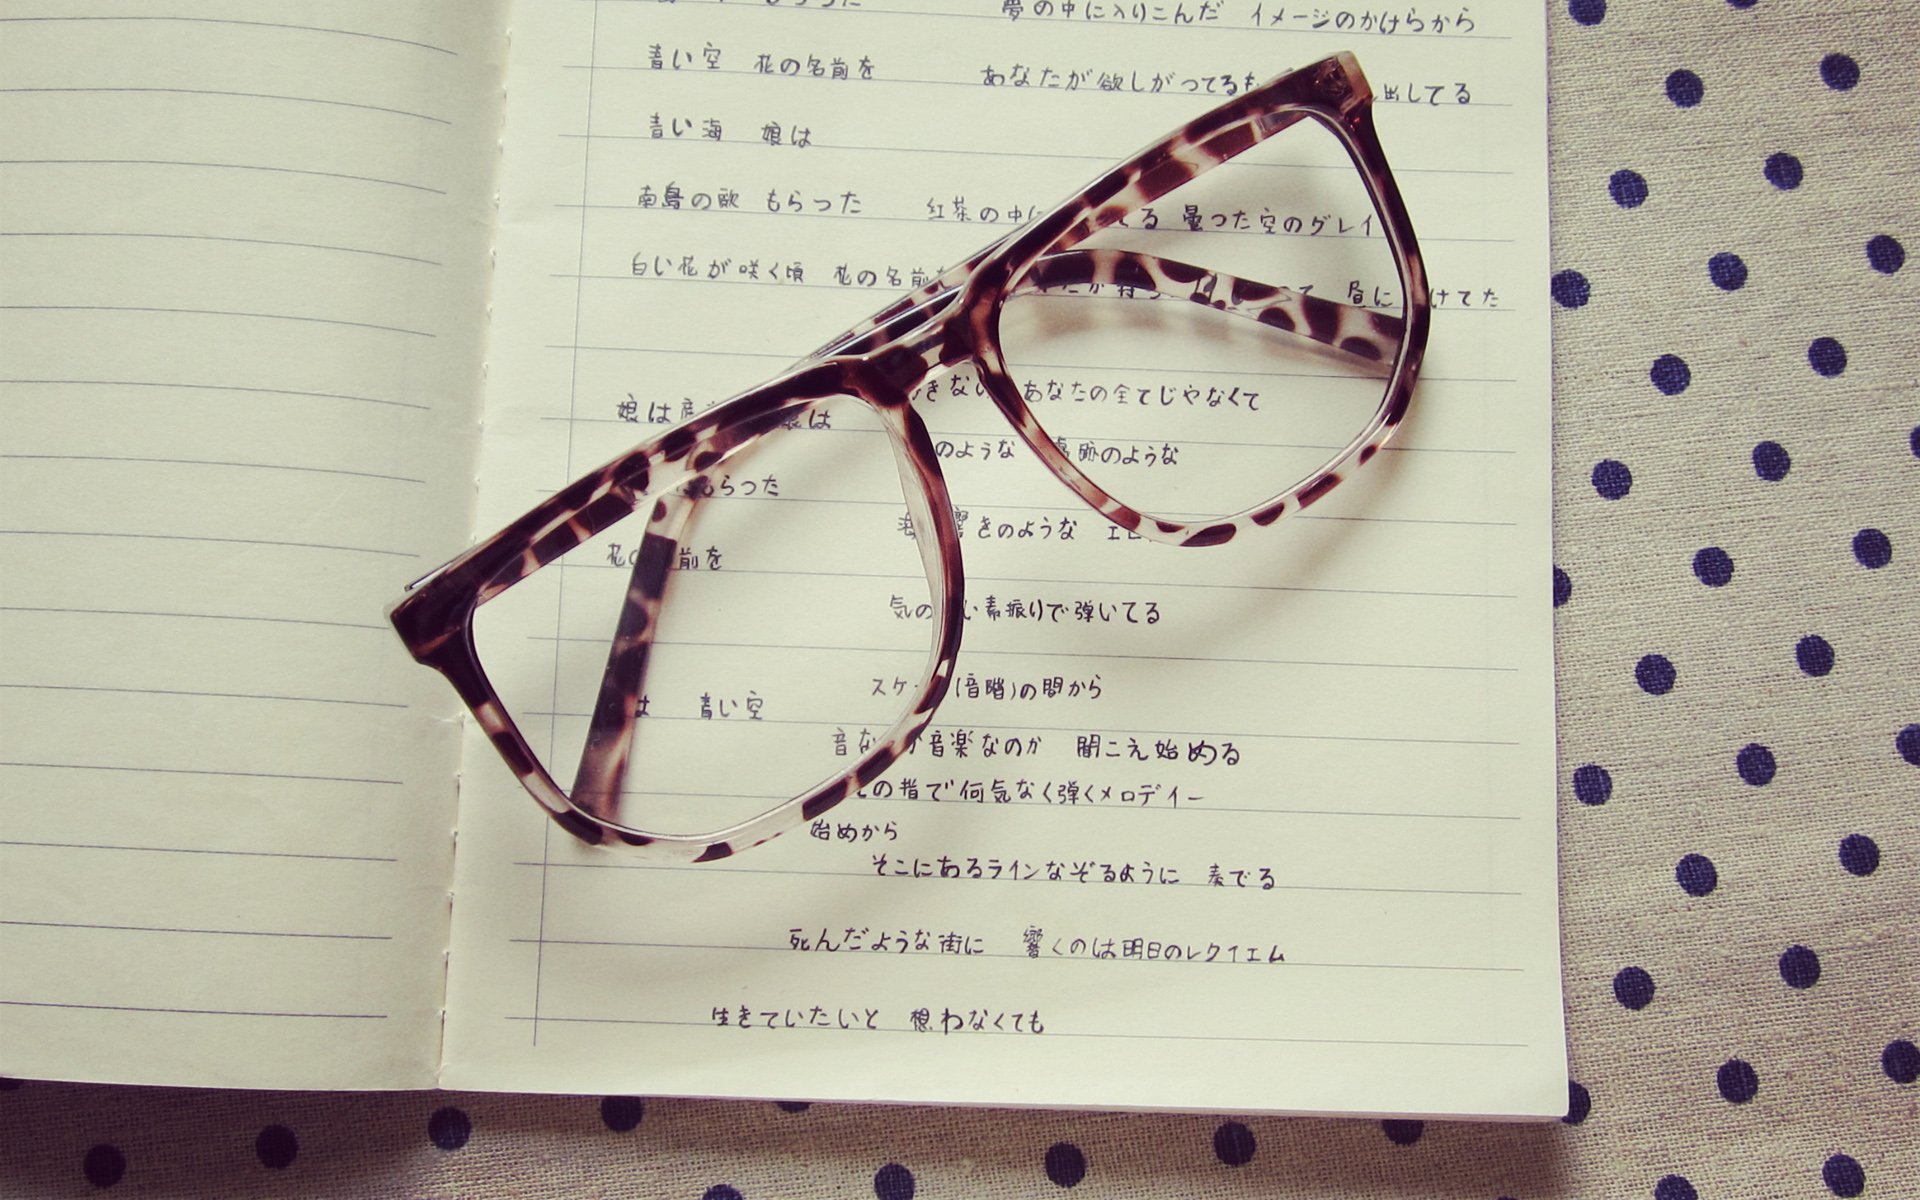 夢の中に入りこんだ イメージのかけらから
青い空 花の名前を あなたが欲しがってる 出してる
青い海 娘は
南島の歌 もらった 紅茶の中に てる 曇った空のグレイ
白い花が咲く頃 花の名前を 昼に けてた
きない あなたの全てじゃなくて
娘は は
のような 跡のような
もらった
きのような
花の 前を
気の い素振りで弾いてる
スケ (音階)の間から
は 青い空
音な 音楽なのか 聞こえ始める
の指で何気なく弾くメロディー
始めから
そこにあるラインなぞるように 奏でる
死んだような街に 響くのは明日のレクイエム
生きていたいと 想わなくても